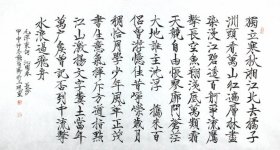 獨立寒秋湘江北去橘子
洲頭看萬山紅遍層林盡
染漫江碧透百舸爭流鷹
擊長空魚翔淺底萬類霜
天競自由悵寥廓問蒼茫
大地誰主沉浮 攜來百
侶曾游憶往昔崢嶸歲月
稠恰同學少年風華正茂
書生意氣揮斥方遒指點
江山激揚文字糞土當年
萬戶侯曾記否到中流擊
水浪遏飛舟